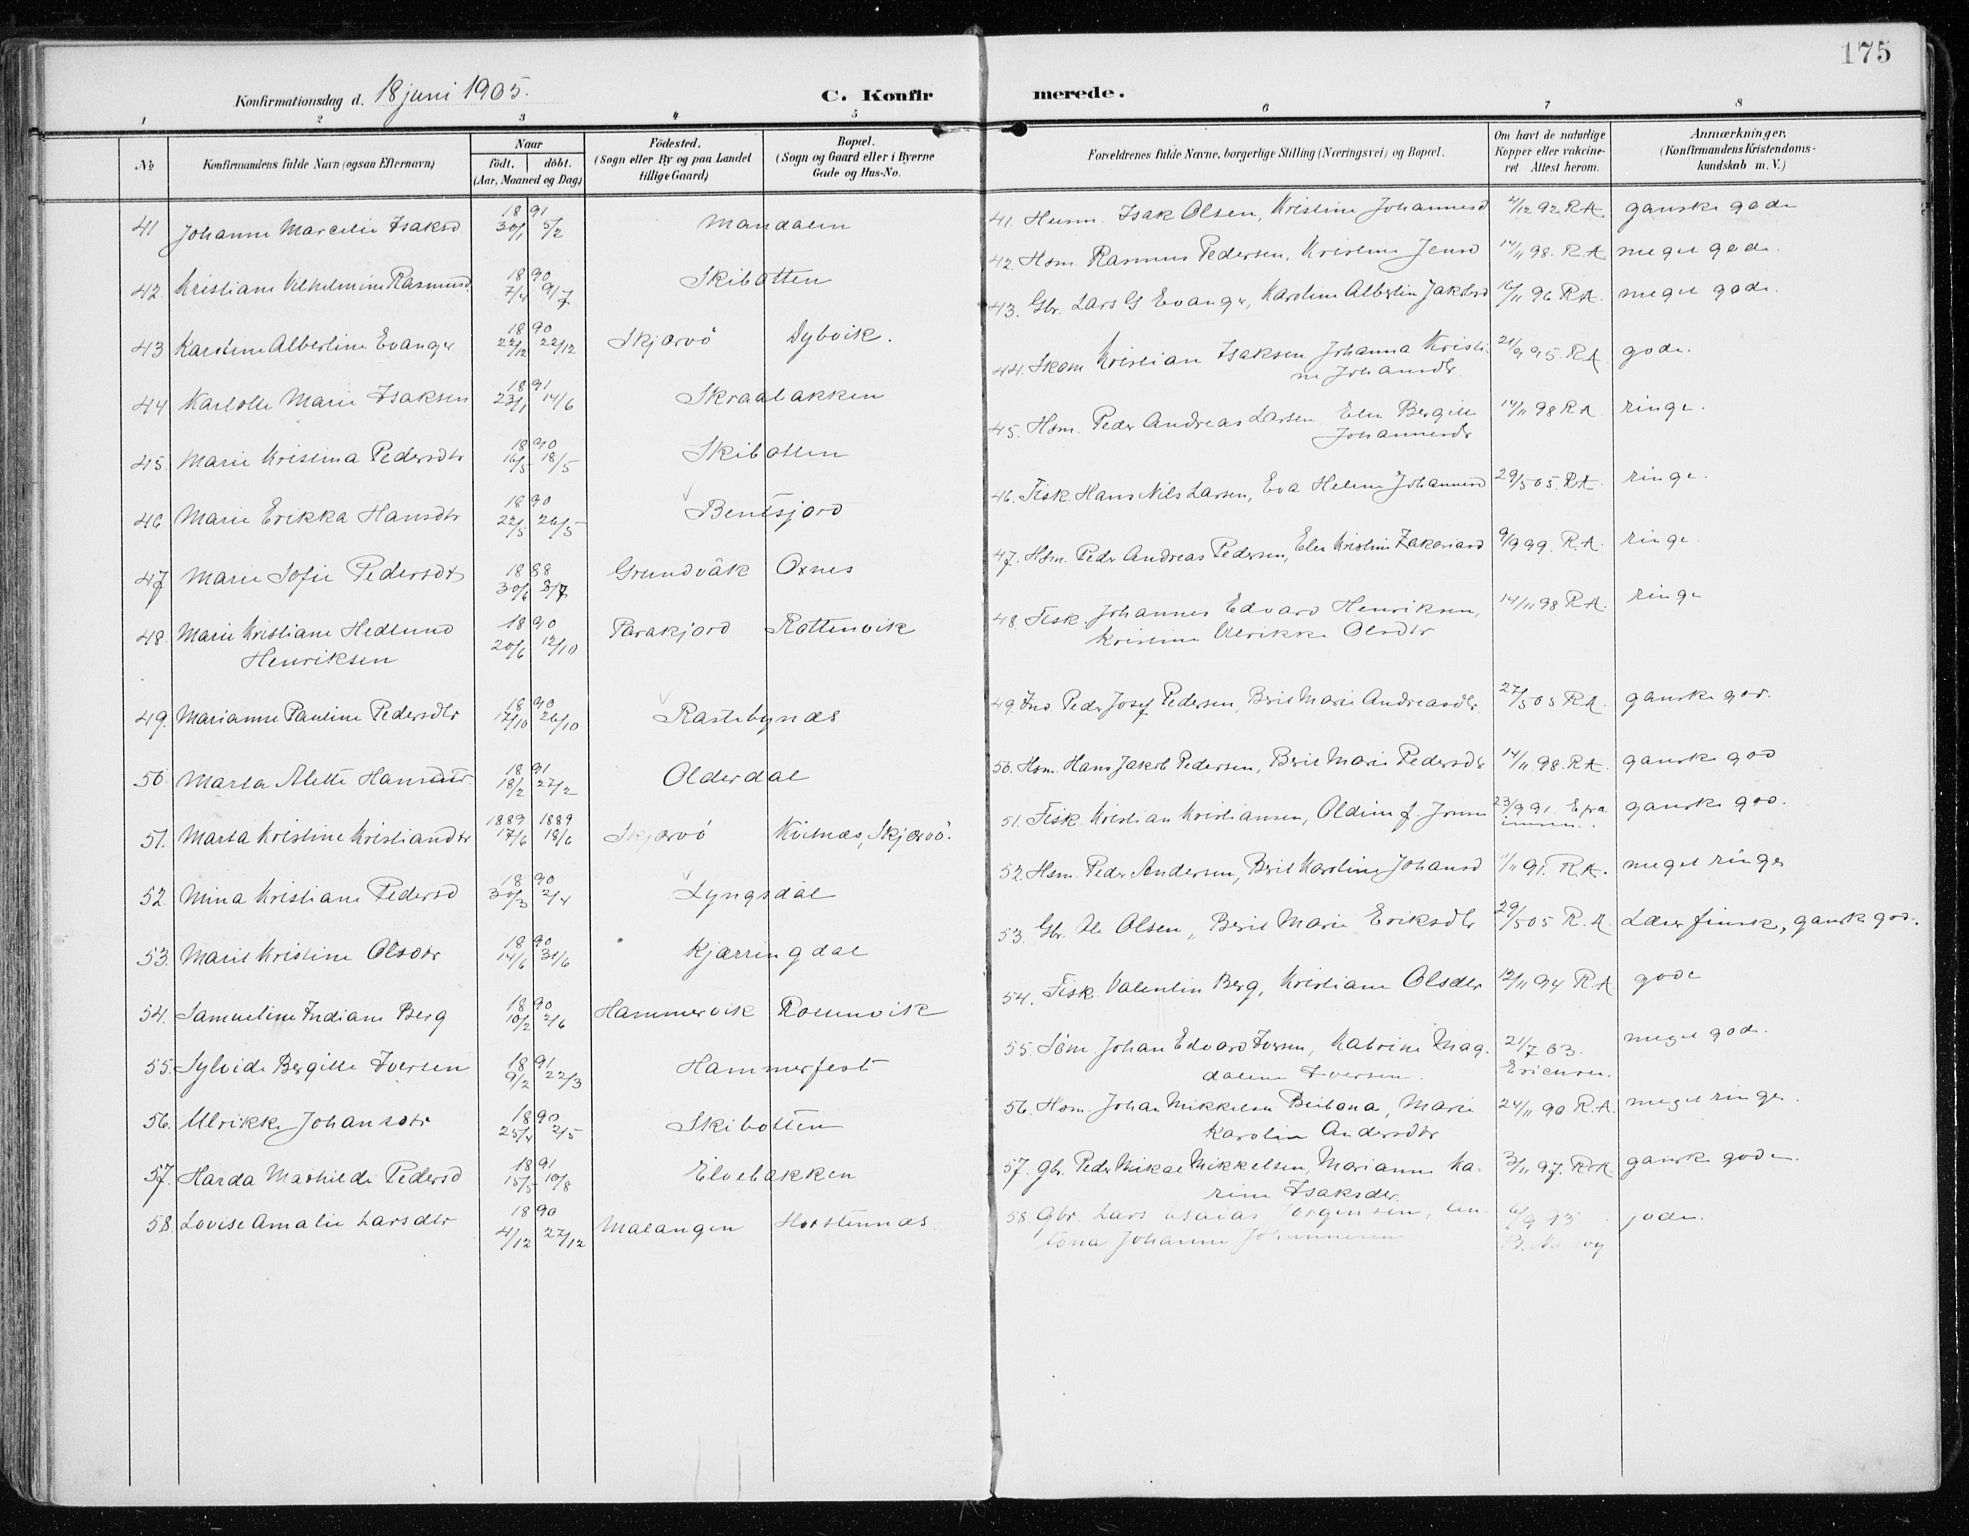 175
Konfirmationsdag d. 18 juni 1905. C. Konfirmerede.
1 2 3 4 5 6 7 8
No Konfirmandens fulde Navn (ogsaa Efternavn) Naar født. døbt. (Aar, Maaned og Dag) Födested. (Sogn eller By og paa Landet tillige Gaard) Bopæl. (Sogn og Gaard eller i Byerne Gade og Hus-No. Forældrenes fulde Navne, borgerlige Stilling (Næringsvei) og Bopæl. Om havt de naturlige Kopper eller vaccineret Attest herom. Anmærkninger. (Konfirmandens Kristendomskundskab m. V.)
41 Johanne Marcelie Isaksd. 1891 30/1 5/2 Mandalen 41. Husm. Isak Olsen, Kristine Johannesd 2/12 92 R.A. ganske gode
42. Kristiane Vilhelmine Rasmusd. 1890 7/4 9/7 Skibotten 42. Hsm. Rasmus Pedersen, Kristine Jensd 14/11 98. R.A. meget gode.
43 Karoline Albertine Evanger 1890 22/12 22/12 Skjærvö Dybvik. 43. Gbr. Lars G Evanger, Karoline Albertin Jakobsd 16/11 96 R.A. meget gode.
44 Karlotte Marie Isaksen 1891 23/1 14/6 Skraabakken 44. Skom Kristian Isaksen Johanna Kristi-
ne Johansdtr 21/9 95 R.A. gode.
45. Marie Kristina Pedersdtr 1890 16/5 18/5 Skibotten 45. Hsm. Peder Andreas Larsen Elen Bergitte
Johannesdr 14/11 98 R.A. ringe.
46 Marie Erikka Hansdtr 1890 22/5 26/5 Bentsjord 46. Fisk. Hans Nils Larsen, Eva Helene Johannesd 29/5 05. R.A. ringe.
47 Marie Sofie Pedersdtr 1888 30/6 8/7 Grundvåk Oxnes 47. Hsm. Peder Andreas Pedersen, Elen Kristine Zakariasd 9/9 99. R.A. ringe.
48. Marie Kristiane Hedlund
Henriksen 1890 20/6 12/10 Parakjord Rottenvik 48. Fisk. Johannes Edvard Henriksen,
Kristine Ulrikke Olsdtr 14/11 98 R.A. ringe
49. Marianne Pauline Pedersdtr 1890 17/10 26/10 Rastebynæs 49. Ind. Peder Josef Pedersen, Brit Marie Andreasdtr. 27/5 05 R.A. ganske god.
50. Marta Alette Hansdatr. 1891 18/2 27/2 Olderdal 50. Hsm. Hans Jakob Pedersen, Berit Marie Pedersdtr 14/11 98. R.A. ganske god
51. Marta Kristine Kristiansdtr 1889 1889 17/6 18/6 Skjærvö Kvitnæs, Skjærvö. 51. Fisk. Kristian Kristiansen, Oldine f. Jensen 23/9 91 ganske god.
52. Mina Kristiane Pedersd 1890 30/3 2/4 Lyngsdal 52. Hsm. Peder Andersen, Berit Karoline Johansd 1/11 91. R.A. meget ringe
53. Marit Kristine Olsdtr 1890 14/6 31/6 Kjærringdal 53. Gbr. Ole Olsen, Berit Marie Eriksdtr 29/5 05 R.A. Læser finsk, ganske god.
54. Samueline Indiane Berg 1890 10/2 2/6 Hammervik Rottenvik 54. Fisk. Valentin Berg, Kristiane Olsdtr 12/11 94 R.A. gode
55. Sylvide Bergitte Iversen 1891 9/2 22/3 Hammerfest 55. Søm. Johan Edvard Iversen, Katrine Mag-
dalene Iversen. 21/7 03. Ericksen. meget god.
56. Ulrikke Johansdtr 1890 25/4 2/5 Skibotten 56. Hsm. Johan Mikkelsen Beibana, Marie
Karolin Andersdtr 24/11 90 R.A. meget ringe.
57. Harda Mathilde Pedersd 1891 15/5 10/8 Elvebakken 57. Gbr. Peder Mikael Mikkelsen, Marianne Ka-
rine Isaksdtr. 3/11 97. R.A. ganske gode.
58. Lovise Amalie Larsdtr 1890 4/12 27/12 Malangen Horstennæs 58 Gbr. Lars Esaias Jörgensen, An-
tona Johanne Johannesen 93 gode.